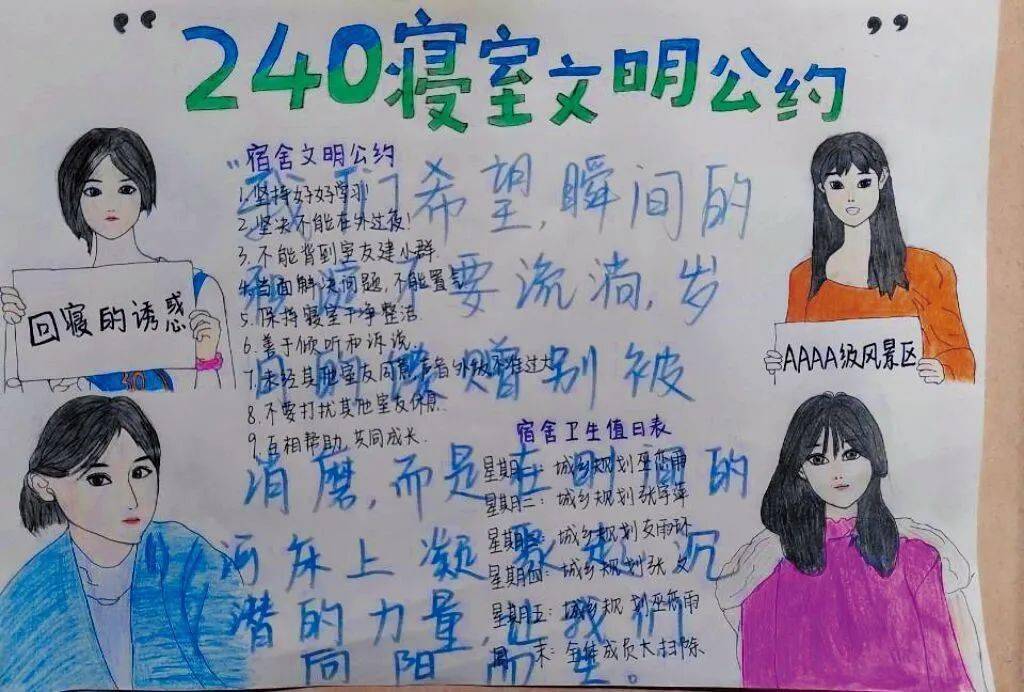 “240寝室文明公约”
宿舍文明公约
1.坚持好好学习!
2.坚决不能在外过夜!
3.不能背到室友建小群.
4.当面解决问题,不能置气
5.保持寝室干净整洁.
6.善于倾听和诉说.
7.未经其他室友同意,声音外放不准过大
8.不要打扰其他室友休息.
9.互相帮助,共同成长.
回寝的诱惑
AAAA级风景区
宿舍卫生值日表
星期一:城乡规划巫雨
星期二:城乡规划张萍
星期三:城乡规划支雨环
星期四:城乡规划张文
星期五:城乡规划巫雨
周末:全体成员大扫除
我们希望,瞬间的
要流淌,岁
月的馈赠别被
消磨,而是在时间的
河床上凝聚沉
潜的力量,让我们
向阳而生。